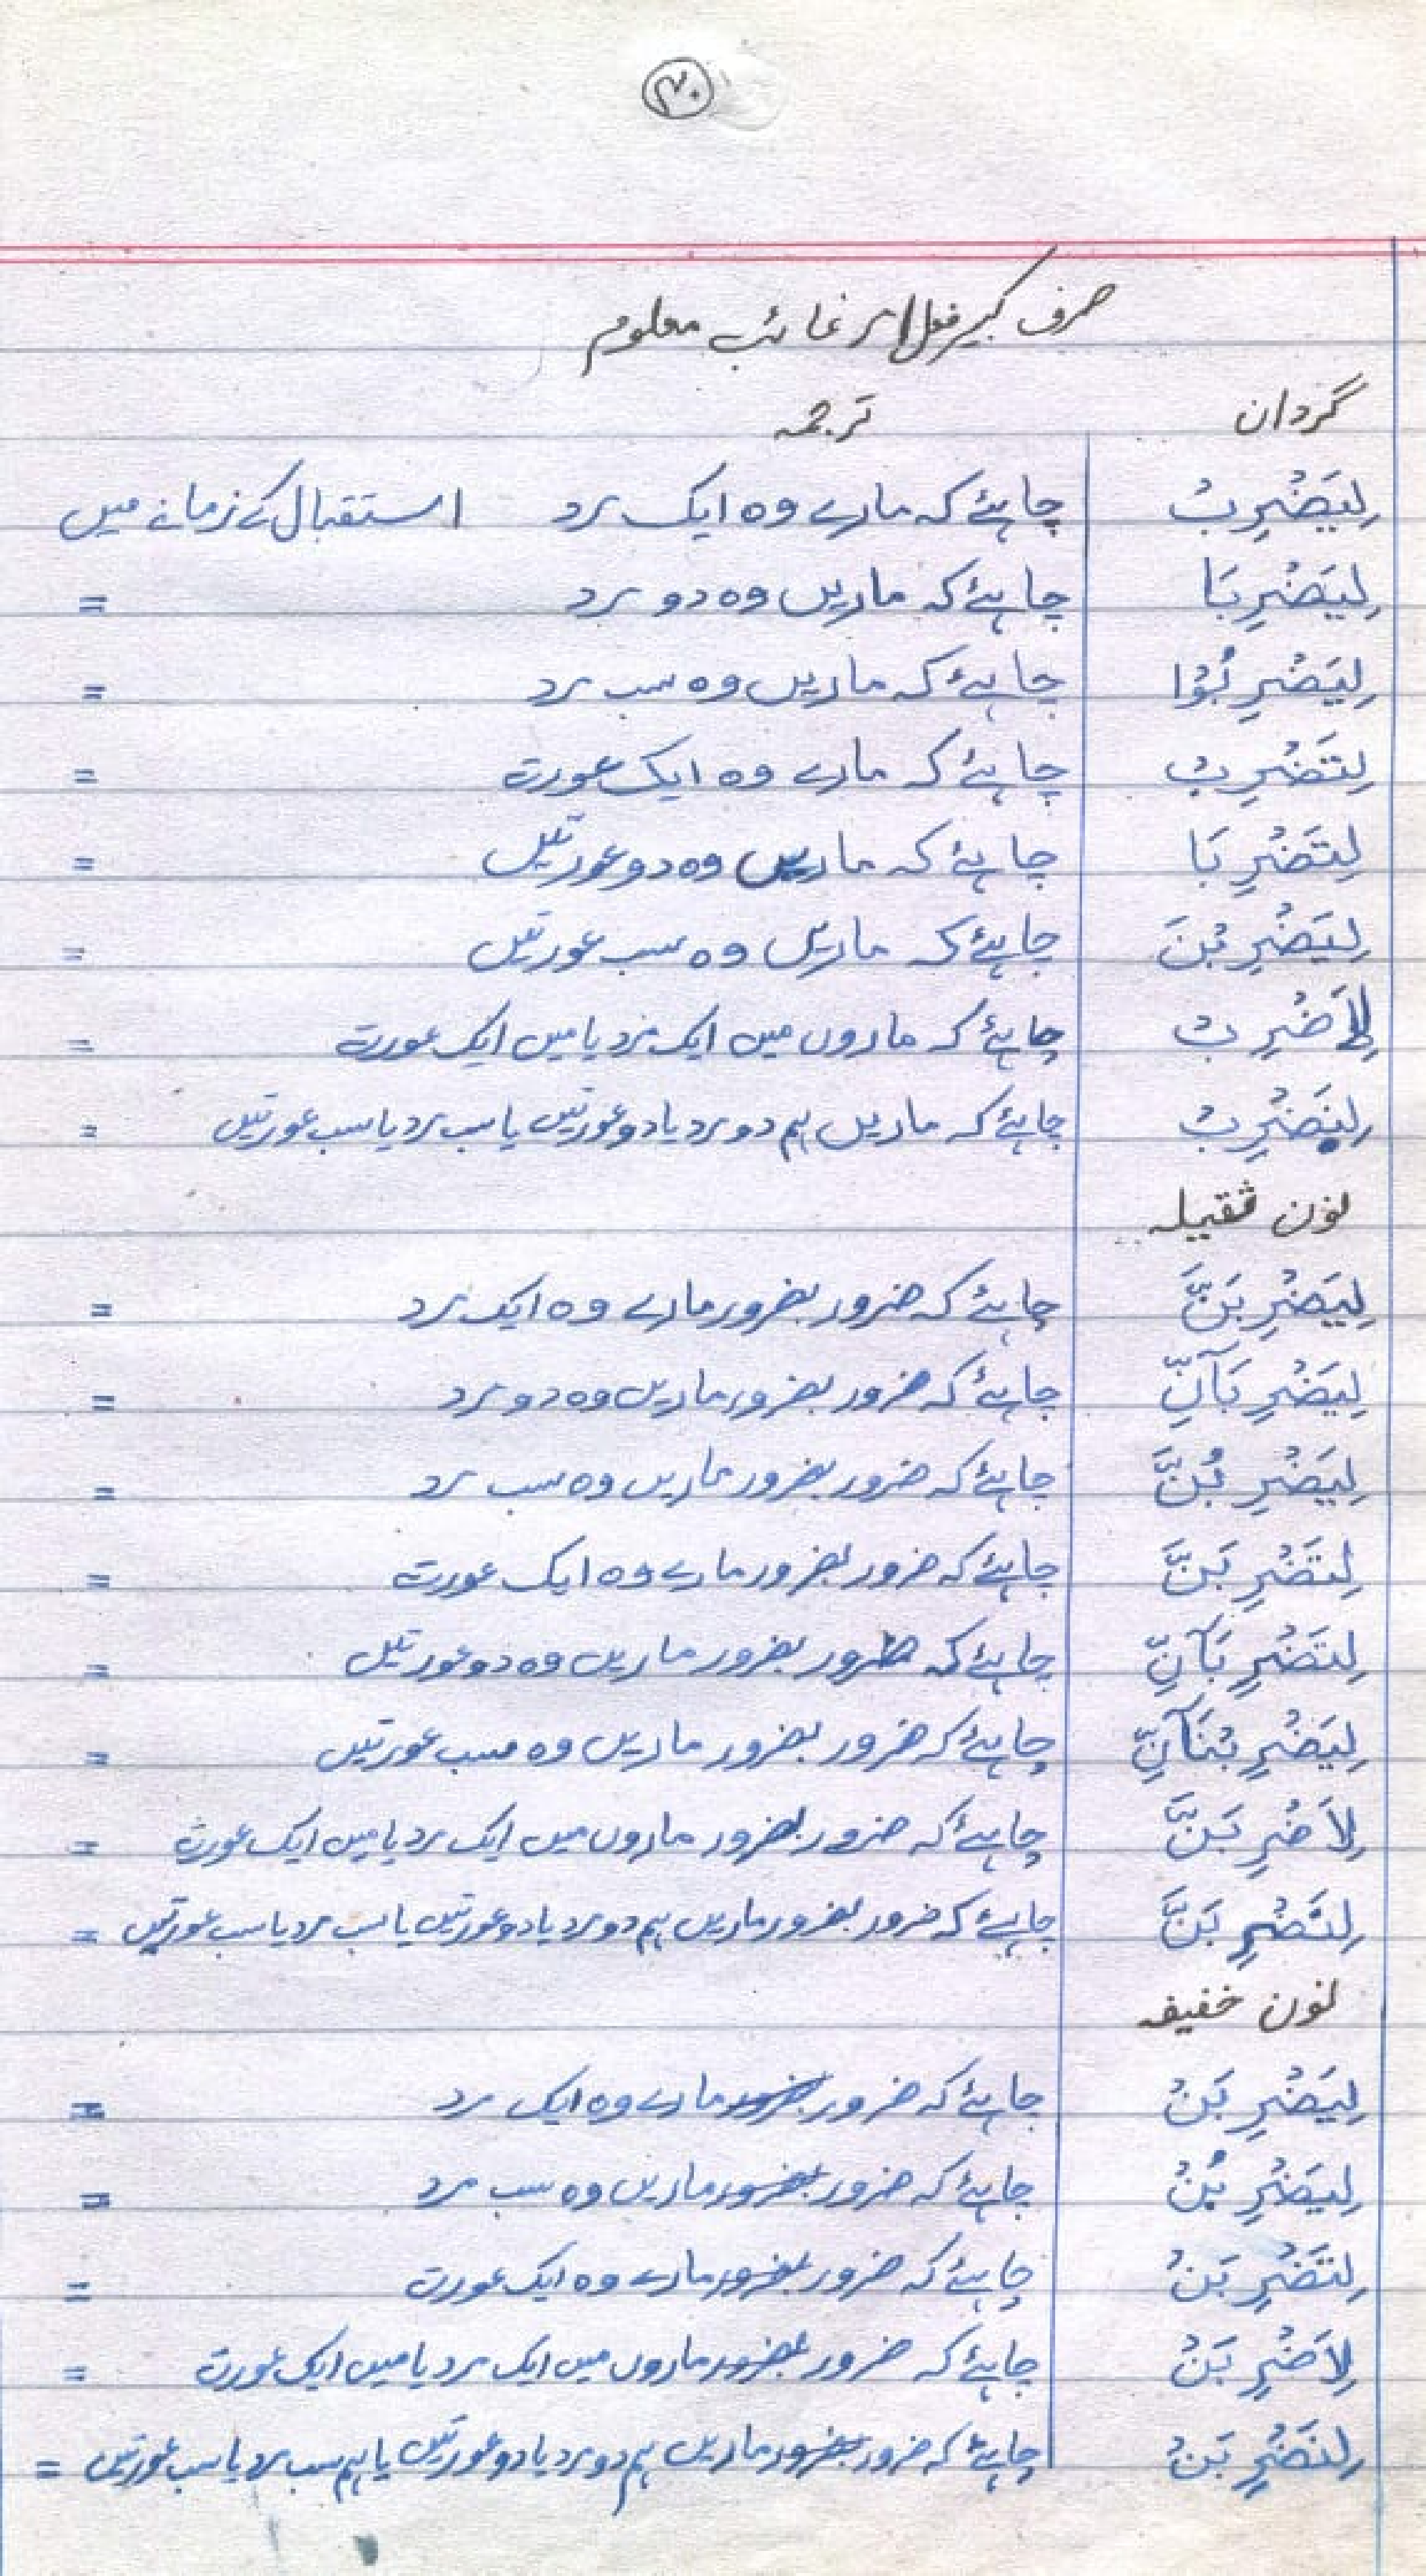 ۳۰
صرف کبیر فعل امر غائب معلوم
گردان ترجمہ
لِیَضْرِبْ چاہئے کہ مارے وہ ایک مرد استقبال کے زمانے میں
لِیَضْرِبَا چاہئے کہ ماریں وہ دو مرد =
لِیَضْرِبُوْا چاہئے کہ ماریں وہ سب مرد =
لِتَضْرِبْ چاہئے کہ مارے وہ ایک عورت =
لِتَضْرِبَا چاہئے کہ ماریں وہ دو عورتیں =
لِیَضْرِبْنَ چاہئے کہ ماریں وہ سب عورتیں =
لِاَضْرِبْ چاہئے کہ ماروں میں ایک مرد یا میں ایک عورت =
لِنَضْرِبْ چاہئے کہ ماریں ہم دو مرد یا دو عورتیں یا سب مرد یا سب عورتیں =
نون ثقیلہ
لِیَضْرِبَنَّ چاہئے کہ ضرور بضرور مارے وہ ایک مرد =
لِیَضْرِبَآنِّ چاہئے کہ ضرور بضرور ماریں وہ دو مرد =
لِیَضْرِبُنَّ چاہئے کہ ضرور بضرور ماریں وہ سب مرد =
لِتَضْرِبَنَّ چاہئے کہ ضرور بضرور مارے وہ ایک عورت =
لِتَضْرِبَآنِّ چاہئے کہ ضرور بضرور ماریں وہ دو عورتیں =
لِیَضْرِبْنَآنِّ چاہئے کہ ضرور بضرور ماریں وہ سب عورتیں =
لِاَضْرِبَنَّ چاہئے کہ ضرور بضرور ماروں میں ایک مرد یا میں ایک عورت =
لِنَضْرِبَنَّ چاہئے کہ ضرور بضرور ماریں ہم دو مرد یا دو عورتیں یا سب مرد یا سب عورتیں =
نون خفیفہ
لِیَضْرِبَنْ چاہئے کہ ضرور بضرور مارے وہ ایک مرد =
لِیَضْرِبُنْ چاہئے کہ ضرور بضرور ماریں وہ سب مرد =
لِتَضْرِبَنْ چاہئے کہ ضرور بضرور مارے وہ ایک عورت =
لِاَضْرِبَنْ چاہئے کہ ضرور بضرور ماروں میں ایک مرد یا میں ایک عورت =
لِنَضْرِبَنْ چاہئے کہ ضرور بضرور ماریں ہم دو مرد یا دو عورتیں یا ہم سب مرد یا سب عورتیں =